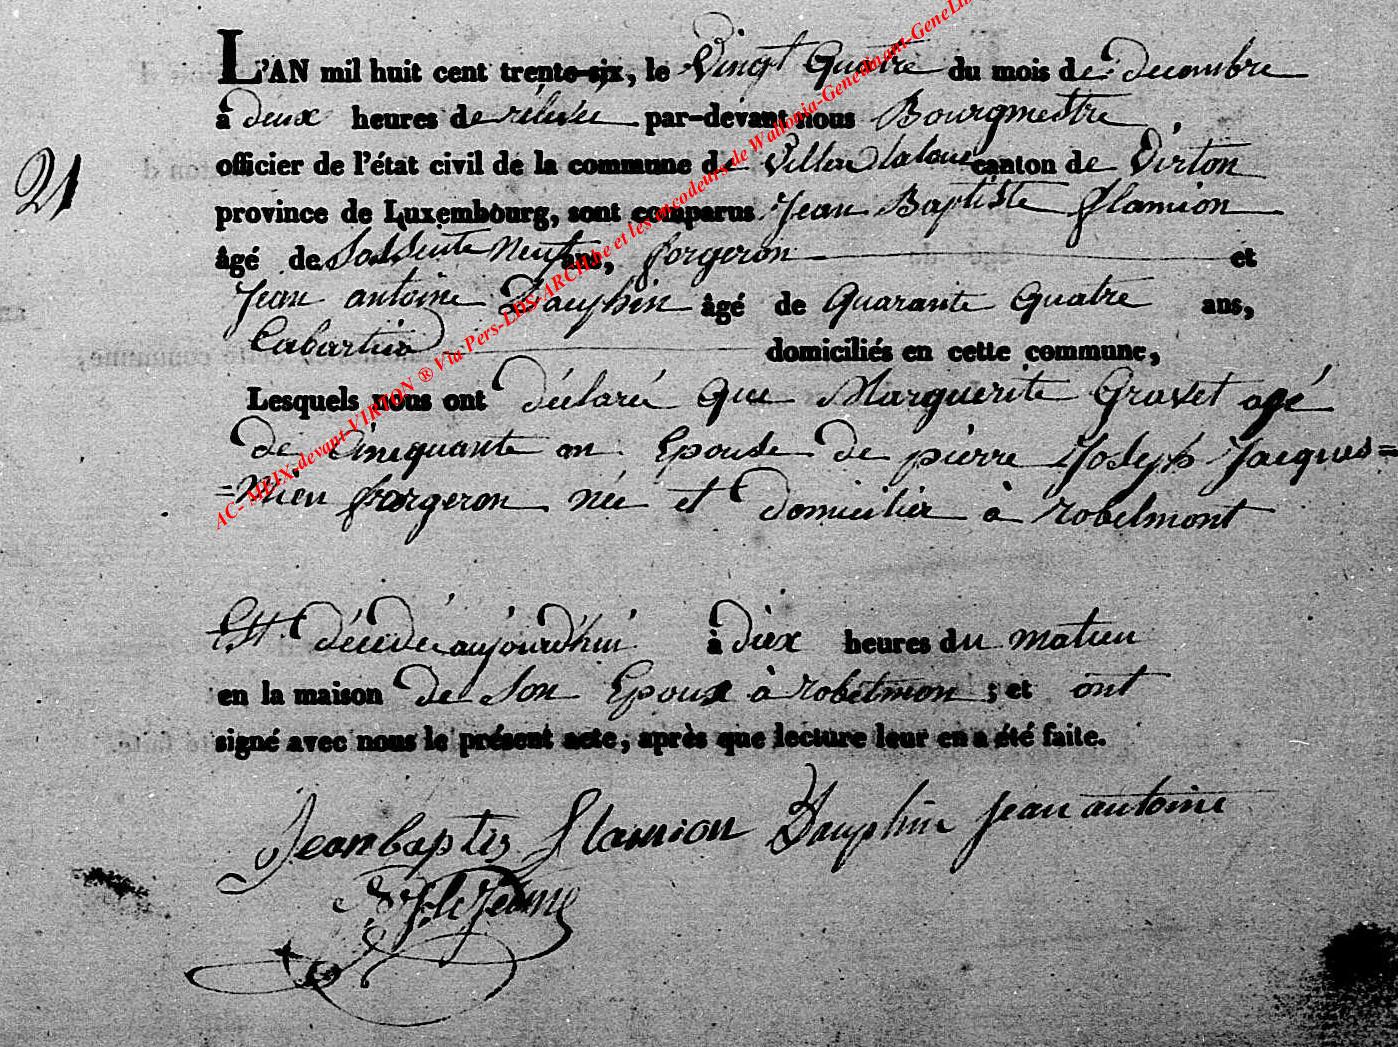 L'AN mil huit cent trente-six, le Vingt Quatre du mois de decembre
à deux heures de relevée par-devant nous Bourgmestre
officier de l'état civil de la commune de Villers laloue canton de Virton
21
province de Luxembourg, sont comparus Jean Baptiste flamion
âgé de Soissente neuf ans, forgeron et
Jean antoine Dauphin âgé de Quarante Quatre ans,
Cabartier domiciliés en cette commune,
Lesquels nous ont déclaré Que Marguerite Gravet agé
de Cinquante an Epouse de pierre Joseph Jacques=
=Mien forgeron née et domicilier à robelmont
Est décédée aujourd'hui à dix heures du matien
en la maison de Son Epoux à robelmon ; et ont
signé avec nous le présent acte, après que lecture leur en a été faite.
Jean baptis flamion Dauphin jean antoine
le Jeune
AC- MEIX-devant-VIRTON ® Via Pers-LDS-ARCH.be et les encodeurs de Wallonia-Genedinant-GeneLux